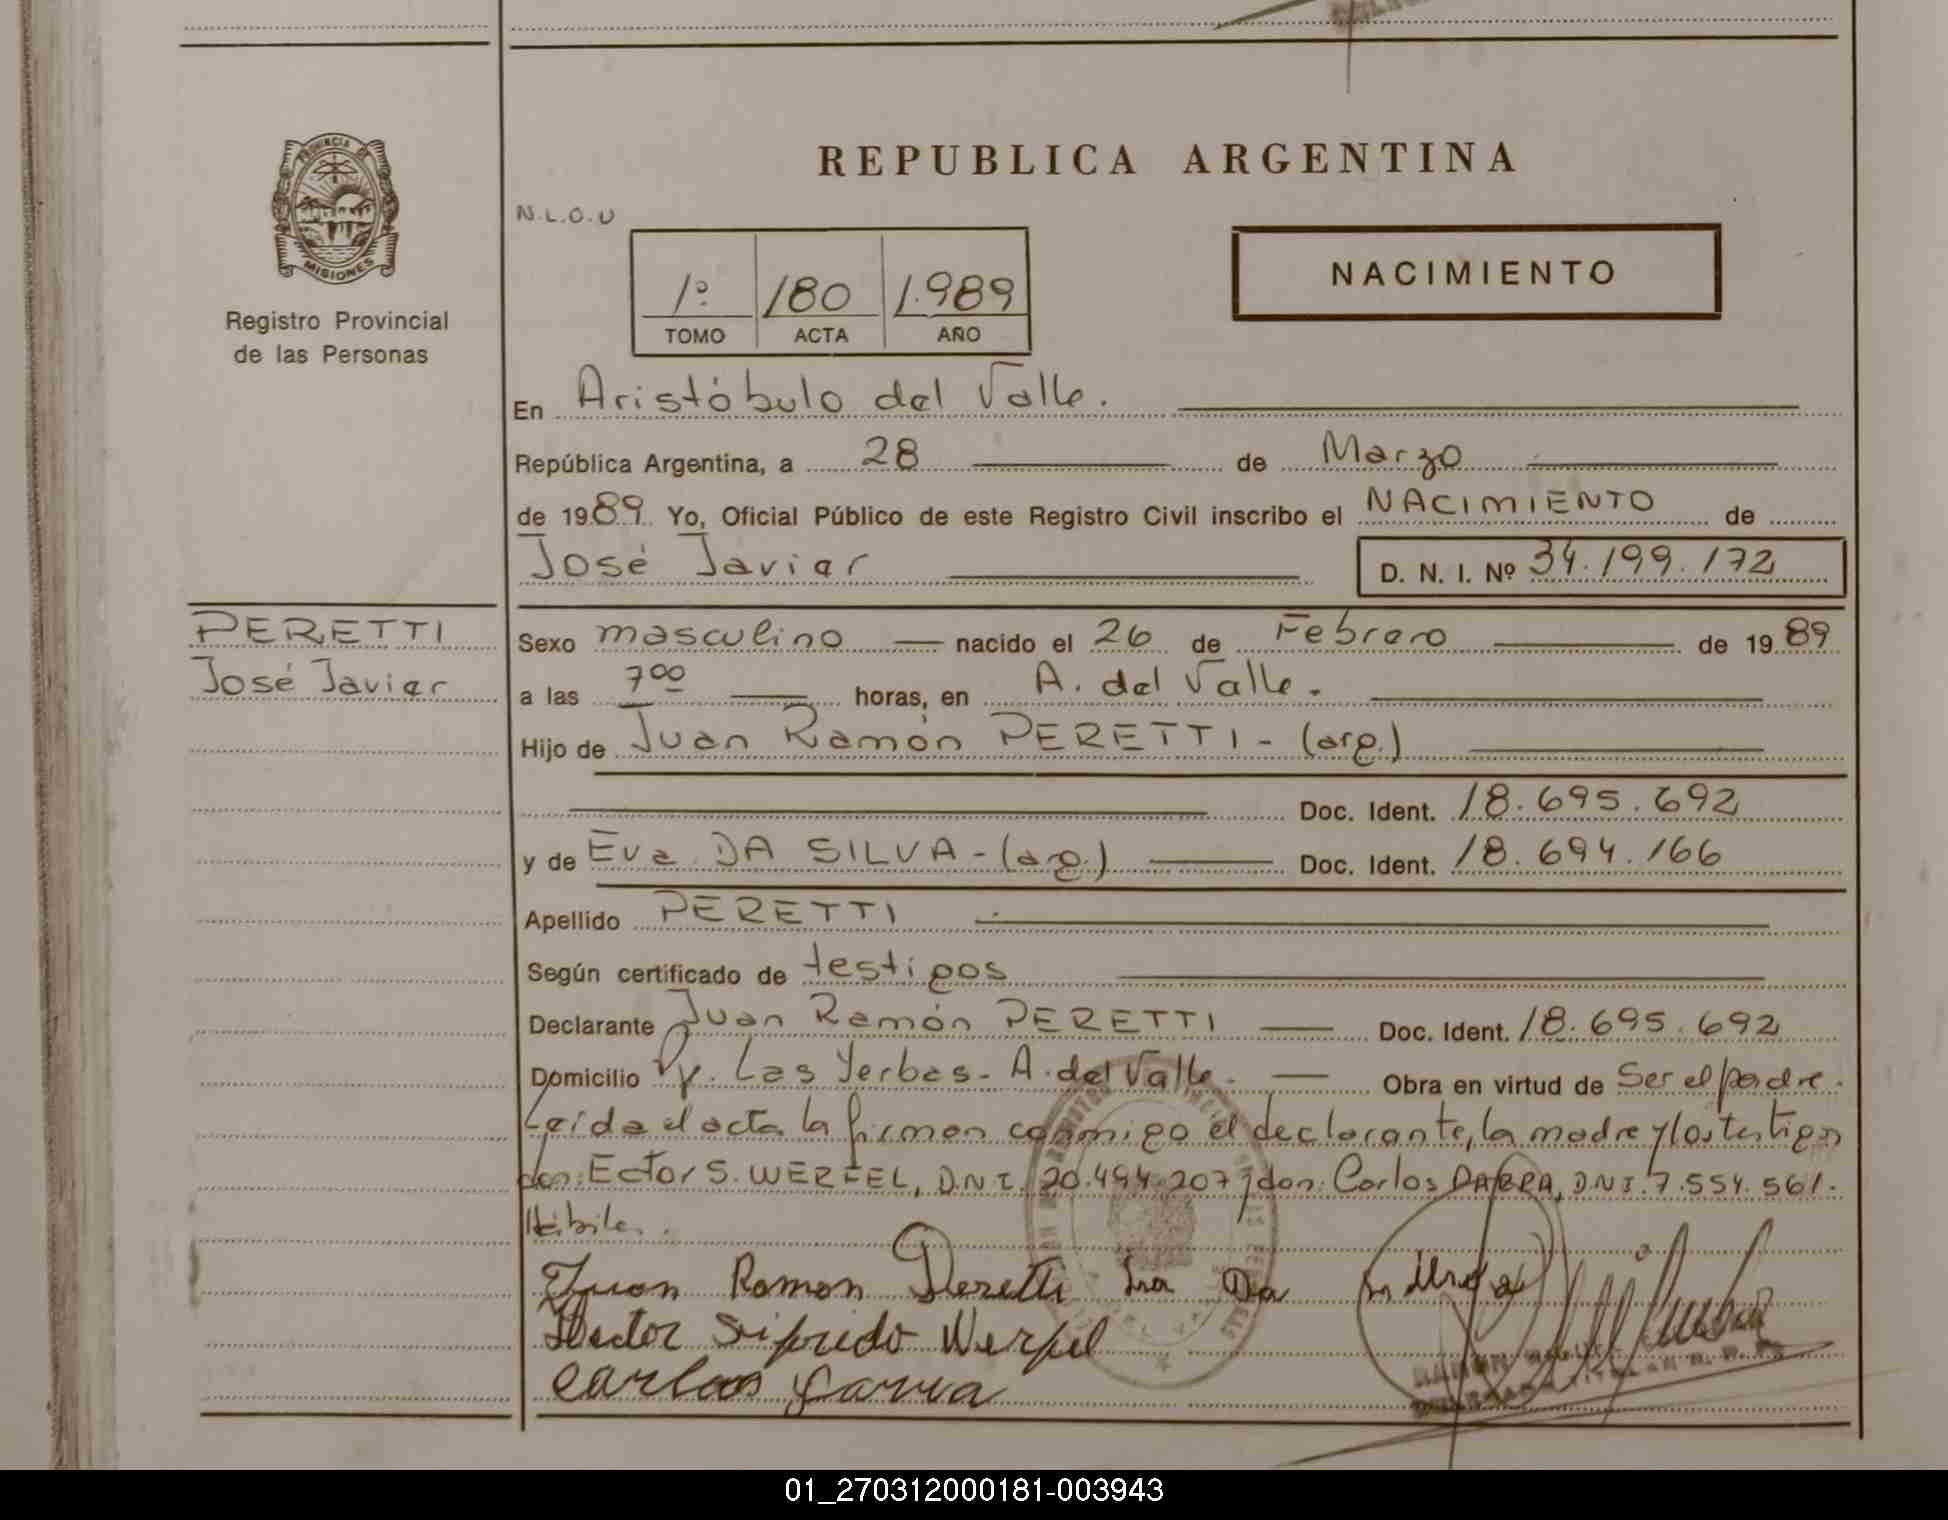 PROVINCIA DE
MISIONES
Registro Provincial
de las Personas
REPUBLICA ARGENTINA
N.L.O.U
1º 180 1.989
TOMO ACTA AÑO
NACIMIENTO
En Aristóbulo del Valle.
República Argentina, a 28 de Marzo
de 1989. Yo, Oficial Público de este Registro Civil inscribo el NACIMIENTO de
José Javier D. N. I. Nº 34.199.172
PERETTI
José Javier
Sexo masculino nacido el 26 de Febrero de 1989
a las 700 horas, en A. del Valle.
Hijo de Juan Ramón PERETTI - (arg.)
Doc. Ident. 18.695.692
y de Eva DA SILVA - (arg.) Doc. Ident. 18.694.166
Apellido PERETTI
Según certificado de testigos
Declarante Juan Ramón PERETTI Doc. Ident. 18.695.692
Domicilio Py. Las Yerbas - A. del Valle. Obra en virtud de Ser el padre.
Leída el acta la firman conmigo el declarante, la madre y los testigos
don: Ector S. WERFEL, D.N.I. 20.494.207 y don: Carlos D.N.I. 7.554.561.
Hábiles.
Juan Ramon Peretti Da
Hector Sifredo Werfel
Carlos
01_270312000181-003943